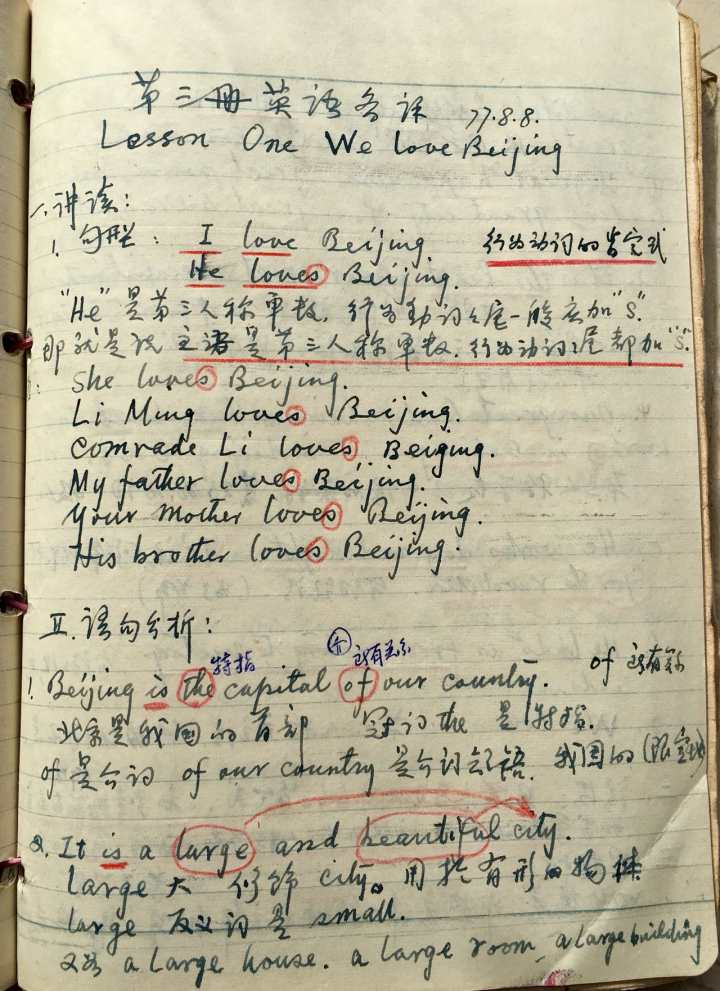 第三册英语备课 77.8.8.
Lesson One We love Beijing
一、讲读:
1. 句型: I love Beijing 行为动词的肯定式
He loves Beijing.
"He"是第三人称单数, 行为动词尾一般应加"S".
那就是说主语是第三人称单数, 行为动词尾都加"S".
She loves Beijing.
Li Ming loves Beijing.
Comrade Li loves Beiging.
My father loves Beijing.
Your Mother loves Beijing.
His brother loves Beijing.
II. 语句分析:
特指 介 所有关系
1. Beijing is the capital of our country. of 所有关系
北京是我国的首都 冠词the 是特指.
of 是介词 of our country 是介词短语. 我国的(限定)
2. It is a large and beautiful city.
large 大 修饰 city。用于有形的物体
large 反义词是 small.
又如 a large house. a large room, a large building